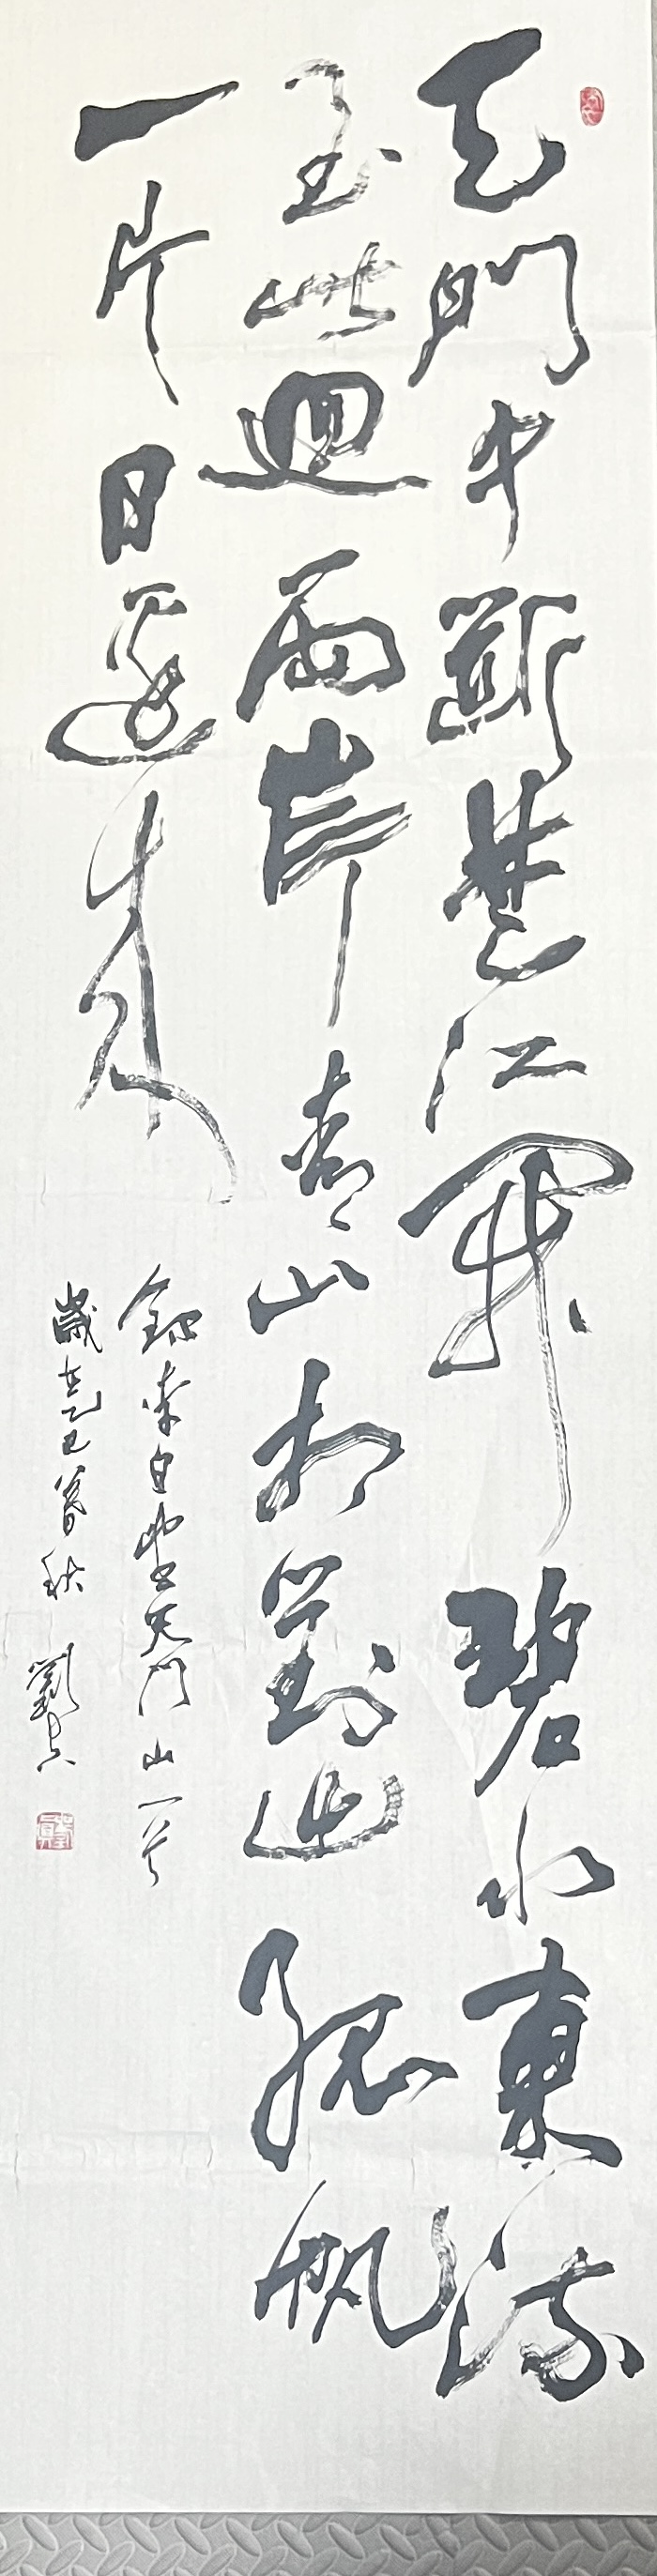 天門中断楚江開碧水東流
至此迴兩岸青山相對出孤帆
一片日邊來
錄李白望天門山一首
歲在乙巳暮秋 劉